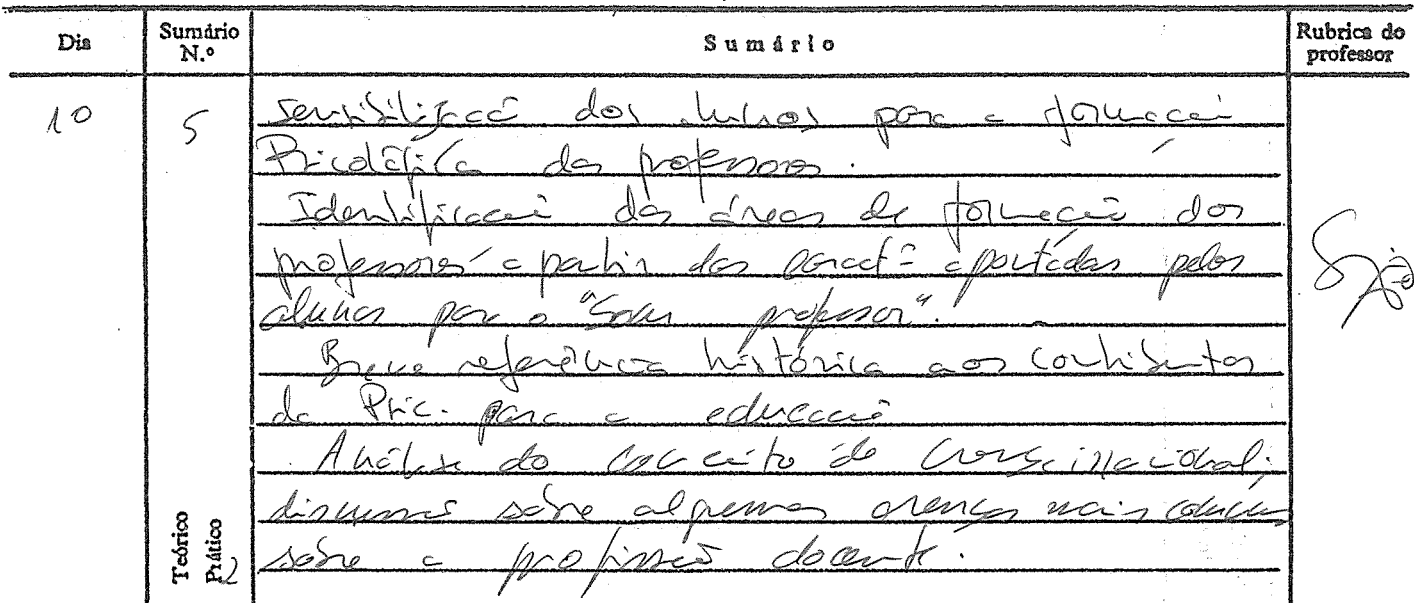 Dia Sumário N.º Sumário Rubrica do professor
10 5 Sensibilização dos alunos para a formação
Psicológica dos professores.
Identificação das áreas de formação dos
professores a partir das caract- apontadas pelos
alunos para o "bom professor".
Breve referência histórica aos contributos
da Psic. para a educação
Análise do conceito de crença irracional;
discussão sobre algumas crenças mais comuns
sobre a profissão docente.
Teórico
Prático 2